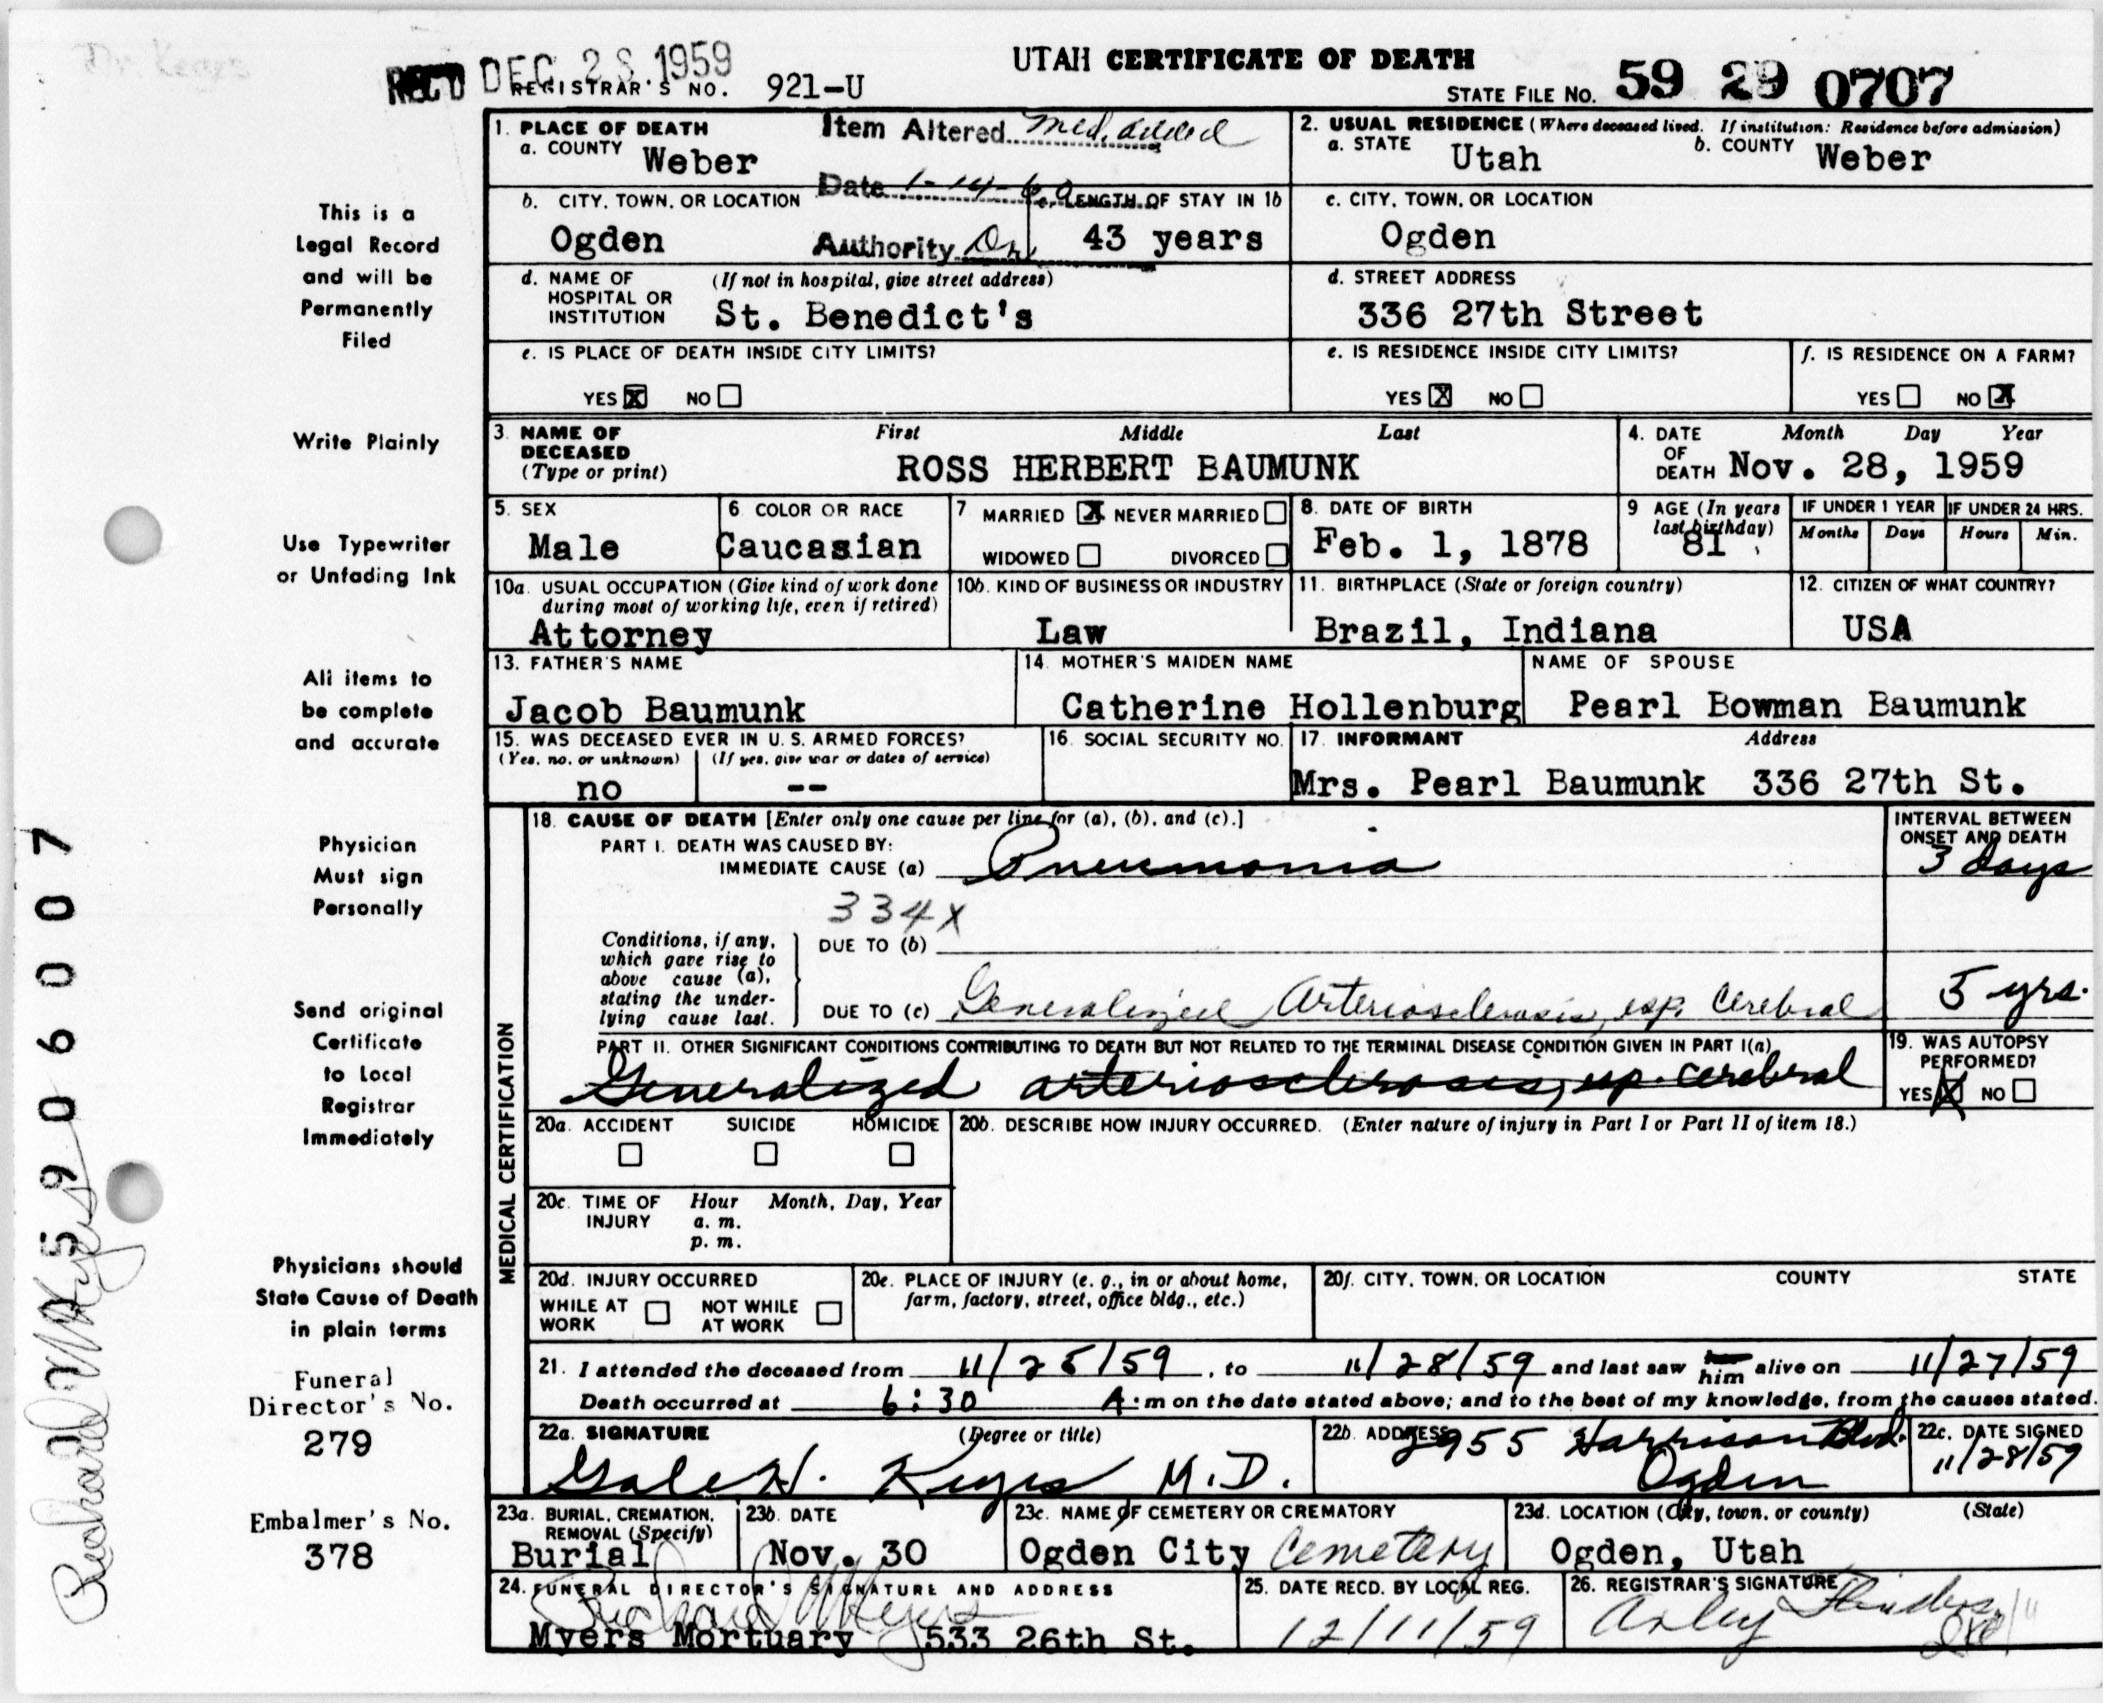 Dr. Keyes
REC'D DEC. 28. 1959
UTAH CERTIFICATE OF DEATH
REGISTRAR'S NO. 921-U
STATE FILE NO. 59 29 0707
1. PLACE OF DEATH
Item Altered Med. added
a. COUNTY Weber
2. USUAL RESIDENCE (Where deceased lived. If institution: Residence before admission)
a. STATE Utah b. COUNTY Weber
Date 1-14-60
b. CITY, TOWN, OR LOCATION
Ogden
Authority Dr
c. LENGTH OF STAY IN 1b
43 years
c. CITY, TOWN, OR LOCATION
Ogden
d. NAME OF HOSPITAL OR INSTITUTION (If not in hospital, give street address)
St. Benedict's
d. STREET ADDRESS
336 27th Street
e. IS PLACE OF DEATH INSIDE CITY LIMITS?
YES X NO
e. IS RESIDENCE INSIDE CITY LIMITS?
YES X NO
f. IS RESIDENCE ON A FARM?
YES NO X
3. NAME OF DECEASED (Type or print)
First Middle Last
ROSS HERBERT BAUMUNK
4. DATE OF DEATH Month Day Year
Nov. 28, 1959
5. SEX
Male
6. COLOR OR RACE
Caucasian
7. MARRIED X NEVER MARRIED
WIDOWED DIVORCED
8. DATE OF BIRTH
Feb. 1, 1878
9. AGE (In years last birthday)
81
IF UNDER 1 YEAR
Months Days
IF UNDER 24 HRS.
Hours Min.
10a. USUAL OCCUPATION (Give kind of work done during most of working life, even if retired)
Attorney
10b. KIND OF BUSINESS OR INDUSTRY
Law
11. BIRTHPLACE (State or foreign country)
Brazil, Indiana
12. CITIZEN OF WHAT COUNTRY?
USA
13. FATHER'S NAME
Jacob Baumunk
14. MOTHER'S MAIDEN NAME
Catherine Hollenburg
NAME OF SPOUSE
Pearl Bowman Baumunk
15. WAS DECEASED EVER IN U.S. ARMED FORCES?
(Yes, no, or unknown) (If yes, give war or dates of service)
no --
16. SOCIAL SECURITY NO.
17. INFORMANT Address
Mrs. Pearl Baumunk 336 27th St.
MEDICAL CERTIFICATION
18. CAUSE OF DEATH [Enter only one cause per line for (a), (b), and (c).]
INTERVAL BETWEEN ONSET AND DEATH
PART I. DEATH WAS CAUSED BY:
IMMEDIATE CAUSE (a) Pneumonia 3 days
334X
Conditions, if any, which gave rise to above cause (a), stating the underlying cause last.
DUE TO (b)
DUE TO (c) Generalized Arteriosclerosis, esp. Cerebral 5 yrs.
PART II. OTHER SIGNIFICANT CONDITIONS CONTRIBUTING TO DEATH BUT NOT RELATED TO THE TERMINAL DISEASE CONDITION GIVEN IN PART I(a)
Generalized arteriosclerosis, esp. cerebral
19. WAS AUTOPSY PERFORMED?
YES X NO
20a. ACCIDENT SUICIDE HOMICIDE
20b. DESCRIBE HOW INJURY OCCURRED. (Enter nature of injury in Part I or Part II of item 18.)
20c. TIME OF INJURY Hour Month, Day, Year
a. m.
p. m.
20d. INJURY OCCURRED
WHILE AT WORK NOT WHILE AT WORK
20e. PLACE OF INJURY (e. g., in or about home, farm, factory, street, office bldg., etc.)
20f. CITY, TOWN, OR LOCATION COUNTY STATE
21. I attended the deceased from 11/25/59, to 11/28/59 and last saw her him alive on 11/27/59
Death occurred at 6:30 A.m on the date stated above; and to the best of my knowledge, from the causes stated.
22a. SIGNATURE (Degree or title)
Gale H. Keyes M.D.
22b. ADDRESS
2955 Harrison Blvd.
Ogden
22c. DATE SIGNED
11/28/59
23a. BURIAL, CREMATION, REMOVAL (Specify)
Burial
23b. DATE
Nov. 30
23c. NAME OF CEMETERY OR CREMATORY
Ogden City Cemetery
23d. LOCATION (City, town, or county) (State)
Ogden, Utah
24. FUNERAL DIRECTOR'S SIGNATURE AND ADDRESS
Myers Mortuary 533 26th St.
25. DATE RECD. BY LOCAL REG.
12/11/59
26. REGISTRAR'S SIGNATURE
This is a
Legal Record
and will be
Permanently
Filed
Write Plainly
Use Typewriter
or Unfading Ink
All items to
be complete
and accurate
Physician
Must sign
Personally
Send original
Certificate
to Local
Registrar
Immediately
Physicians should
State Cause of Death
in plain terms
Funeral
Director's No.
279
Embalmer's No.
378
59 06007